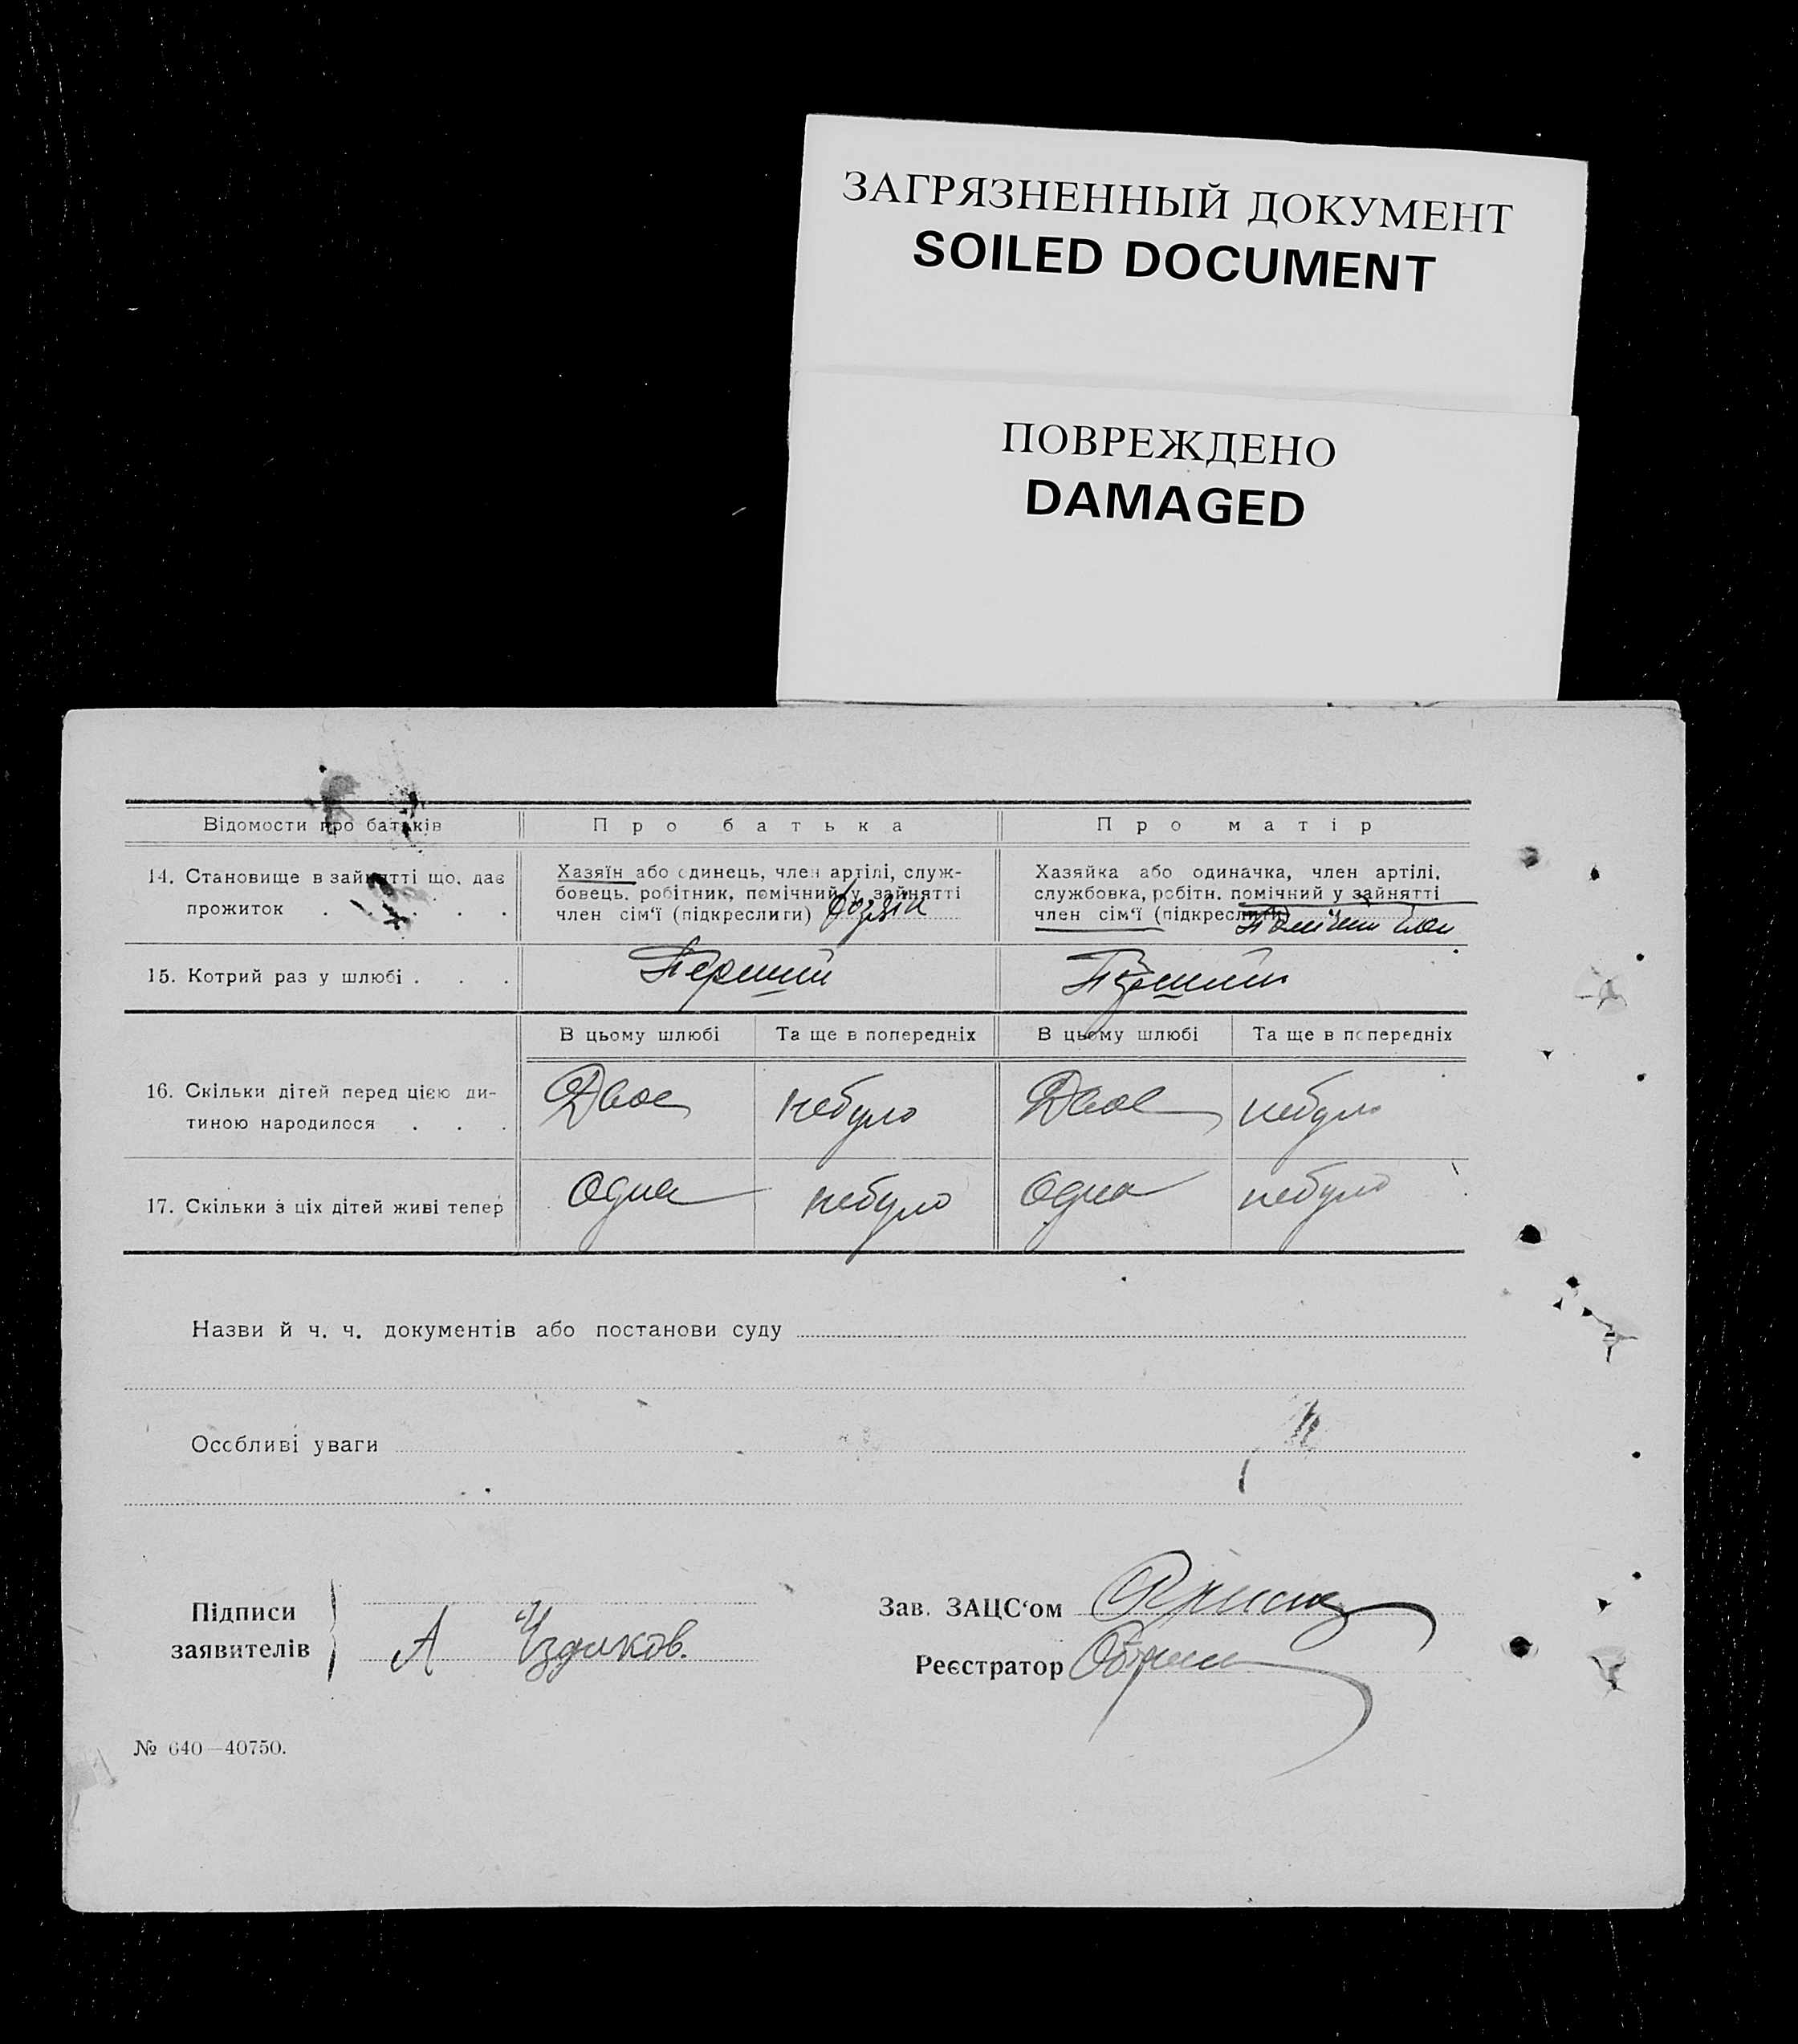 ЗАГРЯЗНЕННЫЙ ДОКУМЕНТ
SOILED DOCUMENT
ПОВРЕЖДЕНО
DAMAGED
Відомости про батьків
Про батька
Про матір
14. Становище в зайнятті що, дає
прожиток . . . . .
Хазяїн або одинець, член артілі, служ-
бовець, робітник, помічний у зайнятті
член сім'ї (підкреслити)
Хазяйка або одиначка, член артілі,
службовка, робітн. помічний у зайнятті
член сім'ї (підкреслити)
15. Котрий раз у шлюбі . . .
Перший
Перший
В цьому шлюбі
Та ще в попередніх
В цьому шлюбі
Та ще в попередніх
16. Скільки дітей перед цією ди-
тиною народилося . . .
Двое
небуло
Двое
небуло
17. Скільки з ціх дітей живі тепер
Одна
небуло
Одна
небуло
Назви й ч. ч. документів або постанови суду
Особливі уваги
Підписи
заявителів
А
Зав. ЗАЦС'ом
Реєстратор
№ 640—40750.